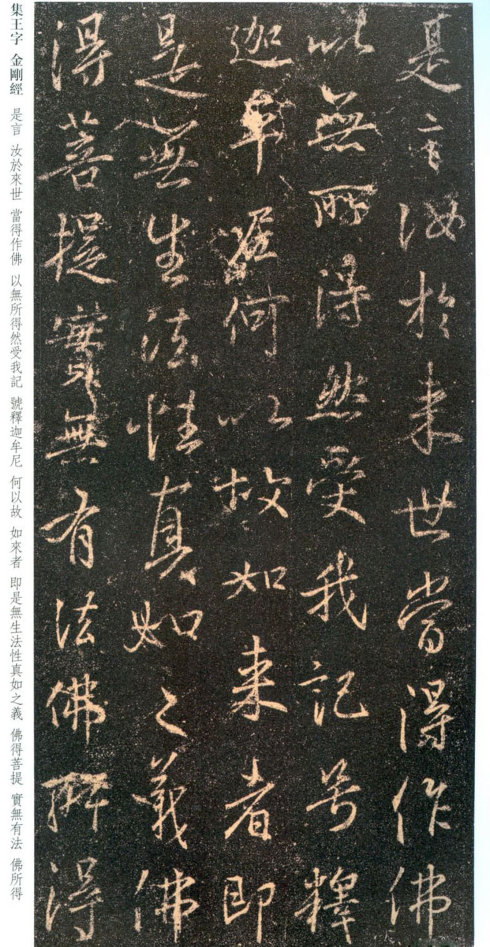 是言汝於来世當得作佛
以無所得然受我記号釋
迦牟尼何以故如来者即
是無生法性真如之義佛
得菩提實無有法佛所得
集王字 金剛經 是言 汝於來世 當得作佛 以無所得然受我記 號釋迦牟尼 何以故 如來者 即是無生法性真如之義 佛得菩提 實無有法 佛所得